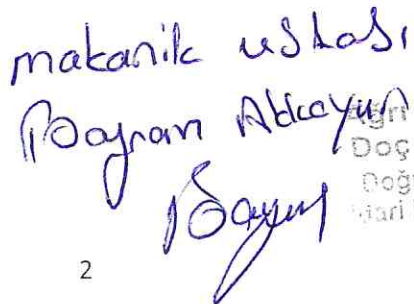 makanik ustası
Bayram Akkoyun
Doç
Doğ
2